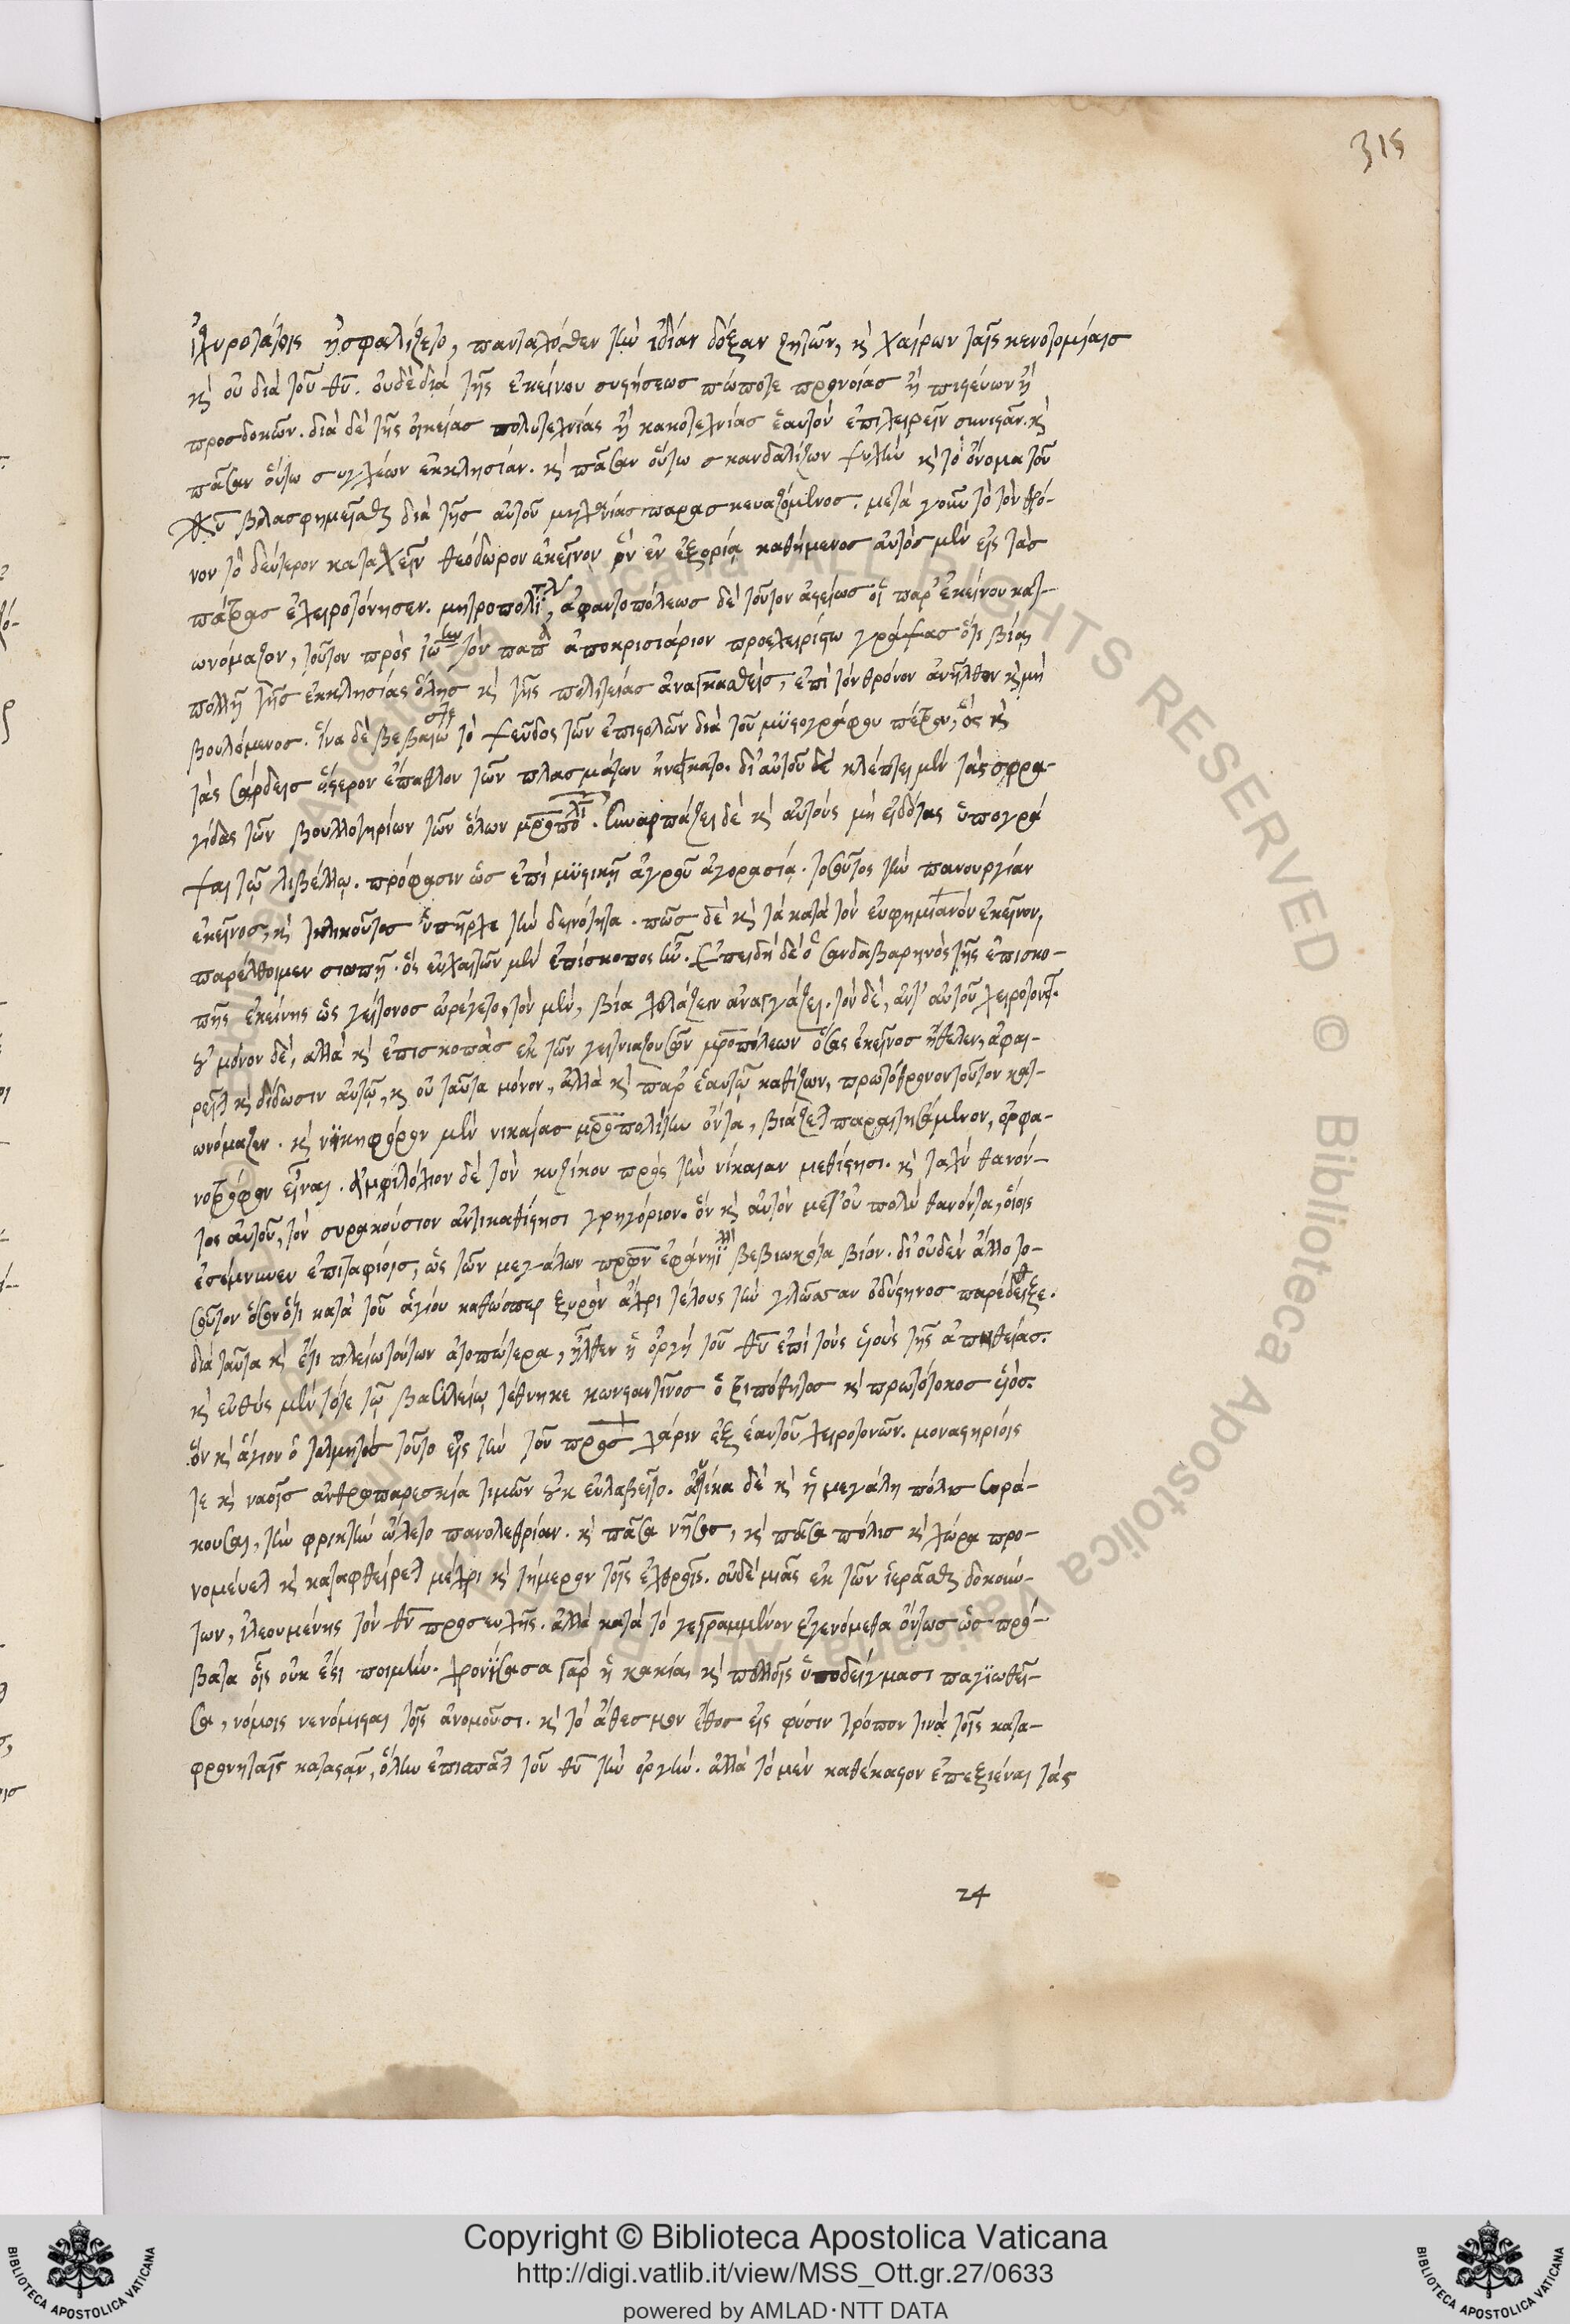 315
ἰσχυροτάτοις ἠσφαλίζετο, πανταχόθεν τὴν ἰδίαν δόξαν ζητῶν, κὶ χαίρων ταῖς κενοτομίαις
κὶ οὐ διὰ τοῦ θυ. οὐδὲ διὰ τῆς ἐκείνου συστήσεως πώποτε προνοίας ἢ πιστεύων ἢ
προσδοκῶν. διὰ δὲ τῆς οἰκείας πολυτεχνίας ἢ κακοτεχνίας ἑαυτὸν ἐπιχειρεῖν συνιστᾶν. κὶ
πᾶσαν οὕτω συγχέων ἐκκλησίαν. κὶ πᾶσαν οὕτω σκανδαλίζων ψυχὴν κὶ τὸ ὄνομα τοῦ
Χυ βλασφημεῖσθαι διὰ τῆς αὐτοῦ μηχανίας παρασκευαζόμενος. μετὰ γοῦν τὸ τὸν θρό-
νον τὸ δεύτερον κατασχεῖν θεόδωρον ἐκεῖνον ὃν ἐν ἐξορίᾳ καθήμενος αὐτὸς μὲν εἰς τὰς
πάτρας ἐχειροτόνησεν. μητροπολίτην, ἀφαντοπόλεως δὲ τοῦτον ἀστείως οἱ παρ' ἐκείνου κατ-
ωνόμαζον, τοῦτον πρὸς ἰω τὸν παπ ἀποκρισιάριον προεχειρίστω γράψας ὅτι βίᾳ
πολλῇ τῆς ἐκκλησίας ὅλης κὶ τῆς πολιτείας ἀναγκασθεὶς, ἐπὶ τὸν θρόνον ἀνῆλθον κὶ μὴ
βουλόμενος. ἵνα δὲ βεβαιώ τὸ ψεῦδος τῶν ἐπιστολῶν διὰ τοῦ μυστογράφου πέτρου, ὃς κὶ
τὰς σάρδεις ὕστερον ἔπαθλον τῶν πλασμάτων ἠνέγκατο. δι' αὐτοῦ δὲ κλέπτει μὲν τὰς σφρα-
γίδας τῶν βουλλοτηρίων τῶν ὅλων μροπολι. συναρπάζει δὲ κὶ αὐτοὺς μὴ εἰδότας ὑπογρά
ψαι τῷ λιβέλλῳ. πρόφασιν ὡς ἐπὶ μυστικῇ ἀγροῦ ἀγορασίᾳ. τοσοῦτος τὴν πανουργίαν
ἐκεῖνος, κὶ τηλικοῦτος ὑπῆρχε τὴν δεινότητα. πῶς δὲ κὶ τὰ κατὰ τὸν εὐφημιανὸν ἐκεῖνον,
παρέλθοιμεν σιωπῇ. ὃς εὐχαΐτων μὲν ἐπίσκοπος ἦν. ἐπειδὴ δὲ ὁ σανδαβαρηνὸς τῆς ἐπισκο-
πῆς ἐκείνης ὡς γείτονος ὠρέγετο, τὸν μὲν, βίᾳ σχολάζειν ἀναγκάζει. τὸν δὲ, ἀντ' αὐτοῦ χειροτονεῖ.
οὐ μόνον δὲ, ἀλλὰ κὶ ἐπισκοπὰς ἐκ τῶν γειτνιαζουσῶν μροπόλεων ὅσας ἐκεῖνος ἤθελεν, ἀφαι-
ρεῖται κὶ δίδωσιν αὐτῷ, κὶ οὐ ταῦτα μόνον, ἀλλὰ κὶ παρ' ἑαυτῷ καθίζων, πρωτόθρονον τοῦτον κατ-
ωνόμαζεν. κὶ νικηφόρον μὲν νικαίας μροπολίτην ὄντα, βιάζεται παραιτησάμενον, ὀρφα-
νοτρόφον εἶναι. ἀμφιλόχιον δὲ τὸν κυζίκου πρὸς τὴν νίκαιαν μεθίστησι. κὶ ταχὺ θανόν-
τος αὐτοῦ, τὸν συρακούσιον ἀντικαθίστησι γρηγόριον. ὃν κὶ αὐτὸν μετ' οὐ πολὺ θανόντα, οἵοις
ἐσέμνυνεν ἐπιταφίοις, ὡς τῶν μεγάλων πρων ἐφάμιλλον βεβιωκότα βίον. δι' οὐδὲν ἄλλο το-
σοῦτον ὅσον ὅτι κατὰ τοῦ ἁγίου καθώσπερ ξυρὸν ἄχρι τέλους τὴν γλῶσσαν ὀδύστηνος παρέδειξε.
διὰ ταῦτα κὶ ἔτι πλείω τούτων ἀτοπώτερα, ἦλθεν ἡ ὀργὴ τοῦ θυ ἐπὶ τοὺς υἱοὺς τῆς ἀπειθείας.
κὶ εὐθὺς μὲν τότε τῷ βασιλείῳ τέθνηκε κωνσταντῖνος ὁ τριπόθητος κὶ πρωτότοκος υἱός.
ὃν κὶ ἅγιον ὁ τολμητὸς τοῦτο εἰς τὴν τοῦ πρς χάριν ἐξ ἑαυτοῦ χειροτονῶν. μοναστηρίοις
τε κὶ ναοῖς ἀνθρωπαρεσκίᾳ τιμῶν οὐκ εὐλαβεῖτο. αὐτίκα δὲ κὶ ἡ μεγάλη πόλις συρά-
κουσαι, τὴν φρικτὴν ὤλετο πανολεθρίαν. κὶ πᾶσα νῆσος, κὶ πᾶσα πόλις κὶ χώρα προ-
νομεύεται κὶ καταφθείρεται μέχρι κὶ τήμερον τοῖς ἐχθροῖς. οὐδὲ μιᾶς ἐκ τῶν ἱερᾶσθαι δοκούν-
των, ἱλεουμένης τὸν θν προσευχῆς. ἀλλὰ κατὰ τὸ γεγραμμένον ἐγενόμεθα ὄντως ὡς πρό-
βατα οἷς οὐκ ἔστι ποιμήν. χρονίσασα γὰρ ἡ κακία, κὶ πολλοῖς ὑποδείγμασι παγιωθεῖ-
σα, νόμοις νενόμισται τοῖς ἀνομοῦσι. κὶ τὸ ἄθεσμον ἔθος εἰς φύσιν τρόπον τινὰ τοῖς κατα-
φρονηταῖς καταστὰν, ὅλην ἐπισπᾶται τοῦ θυ τὴν ὀργήν. ἀλλὰ τὸ μὲν καθέκαστον ἐπεξιέναι τὰς
24
Copyright © Biblioteca Apostolica Vaticana
http://digi.vatlib.it/view/MSS_Ott.gr.27/0633
powered by AMLAD·NTT DATA